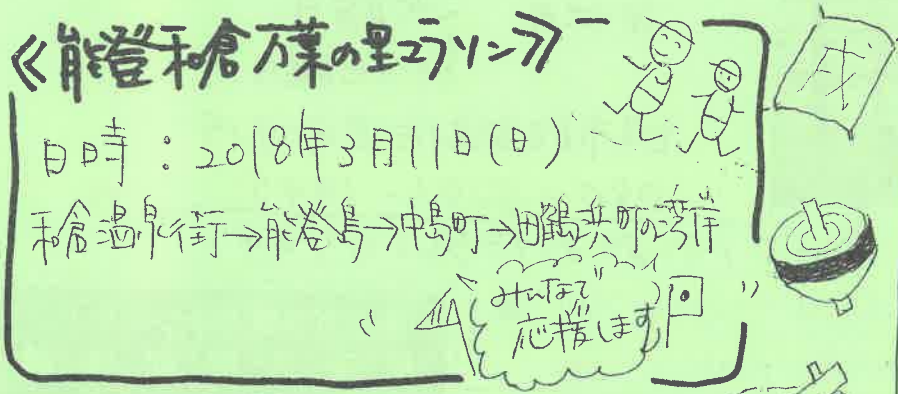 ≪能登和倉万葉の里マラソン≫
戌
日時：2018年3月11日(日)
和倉温泉街→能登島→中島町→田鶴浜町の湾岸
みんなで
応援します